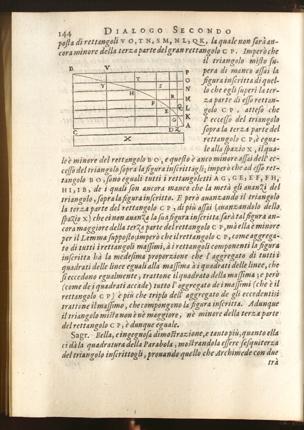 144 DIALOGO SECONDO
posta di rettangoli VO, TN, SM, NL, QK, la quale non sarà an-
cora minore della terza parte del gran rettangolo CP. Imperò che
il triangolo misto su-
pera di manco assai la
figura inscritta di quel-
lo che egli superi la ter-
za parte di esso rettan-
golo CP, atteso che
l'eccesso del triangolo
sopra la terza parte del
rettangolo CP, è egua-
le allo spazio X, il qua-
B V P
Y T S O
H N
F M
L
K
C D A
X
le è minore del rettangolo BO, e questo è anco minore assai dell'ec-
cesso del triangolo sopra la figura inscrittagli; imperò che ad esso ret-
tangolo BO, sono eguali tutti i rettangoletti AG, GE, EF, FH,
HI, IB, de i quali son ancora manco che la metà gli avanzi del
triangolo, sopra la figura inscritta. E però avanzando il triangolo
la terza parte del rettangolo CP, di più assai (avanzandolo dello
spazio X) che ei non avanza la sua figura inscritta, sarà tal figura an-
cora maggiore della terza parte del rettangolo CP, ma ella è minore
per il Lemma supposto; imperò che il rettangolo CP, come aggrega-
to di tutti i rettangoli massimi, à i rettangoli componenti la figura
inscritta hà la medesima proporzione che l'aggregato di tutti i
quadrati delle linee eguali alla massima à i quadrati delle linee, che
si eccedono egualmente, trattone il quadrato della massima; e però
(come de i quadrati accade) tutto l'aggregato de i massimi (che è il
rettangolo CP) è più che triplo dell'aggregato de gli eccedenti si
trattone il massimo, che compongono la figura inscritta. Adunque
il triangolo misto non è nè maggiore, nè minore della terza parte
del rettangolo CP, è dunque eguale.
Sagr. Bella, e ingegnosa dimostrazione, e tanto più, quanto ella
ci dà la quadratura della Parabola, mostrandola essere sesquiterza
del triangolo inscrittogli, provando quello che Archimede con due
trà